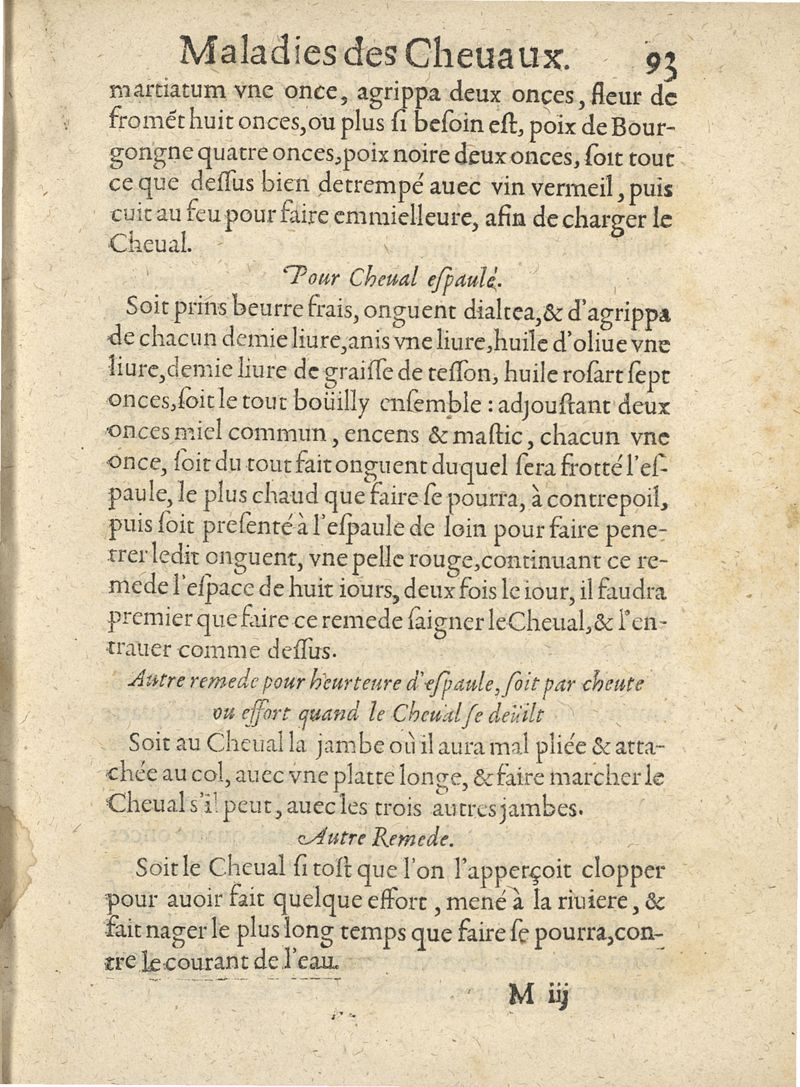 Maladies des Cheuaux. 93
martiatum vne once, agrippa deux onçes, fleur de
fromẽt huit onces, ou plus ſi beſoin eſt, poix de Bour-
gongne quatre onces, poix noire deux onces, ſoit tout
ce que deſſus bien detrempé auec vin vermeil, puis
cuit au feu pour faire emmielleure, afin de charger le
Cheual.
Pour Cheual eſpaulé.
Soit prins beurre frais, onguent dialtea, & d'agrippa
de chacun demie liure, anis vne liure, huile d'oliue vne
liure, demie liure de graiſſe de teſſon, huile roſart ſept
onces, ſoit le tout boüilly enſemble : adjouſtant deux
onces miel commun, encens & maſtic, chacun vne
once, ſoit du tout fait onguent duquel ſera frotté l'eſ-
paule, le plus chaud que faire ſe pourra, à contrepoil,
puis ſoit preſenté à l'eſpaule de loin pour faire pene-
trer ledit onguent, vne pelle rouge, continuant ce re-
mede l'eſpace de huit iours, deux fois le iour, il faudra
premier que faire ce remede ſaigner le Cheual, & l'en-
trauer comme deſſus.
Autre remede pour heurteure d'eſpaule, ſoit par cheute
ou effort quand le Cheual ſe deüilt
Soit au Cheual la jambe où il aura mal pliée & atta-
chée au col, auec vne platte longe, & faire marcher le
Cheual s'il peut, auec les trois autres jambes.
Autre Remede.
Soit le Cheual ſi toſt que l'on l'apperçoit clopper
pour auoir fait quelque effort, mené à la riuiere, &
fait nager le plus long temps que faire ſe pourra, con-
tre le courant de l'eau.
M iij